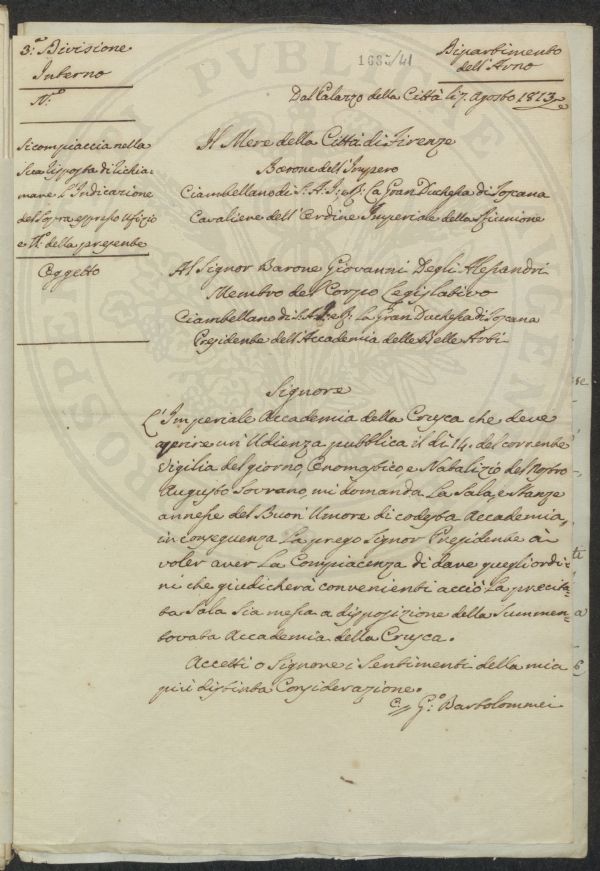 3.ª Divisione
Interno
N.º
Si compiaccia nella
Sua risposta di richia-
mare l'Indicazione
del sopra espresso Ufizio
e N.º della presente
Oggetto
1685/41
Dipartimento
dell'Arno
Dal Palazzo della Città li 7. Agosto 1813.
Il Mere della Città di Firenze
Barone dell'Impero
Ciambellano di S. A. I. e R. la Gran Duchessa di Toscana
Cavaliere dell'Ordine Imperiale della Riunione
Al Signor Barone Giovanni Degli Alessandri
Membro del Corpo Legislativo
Ciambellano di S. A. I. e R. la Gran Duchessa di Toscana
Presidente dell'Accademia delle Belle Arti
Signore
L'Imperiale Accademia della Crusca che deve
aprire un'Udienza pubblica il dì 14. del corrente
Vigilia del giorno, Onomastico, e Natalizio del Nostro
Augusto Sovrano, mi domanda La Sala, e Stanze
annesse del Buon'Umore di codesta Accademia,
in conseguenza La prego Signor Presidente a
voler aver La Compiacenza di dare quegli ordi=
ni che giudicherà convenienti acciò La precita=
ta Sala Sia messa a disposizione della Summen=
tovata Accademia della Crusca.
Accetti o Signore i Sentimenti della mia
più distinta Considerazione.
G.º Bartolommei